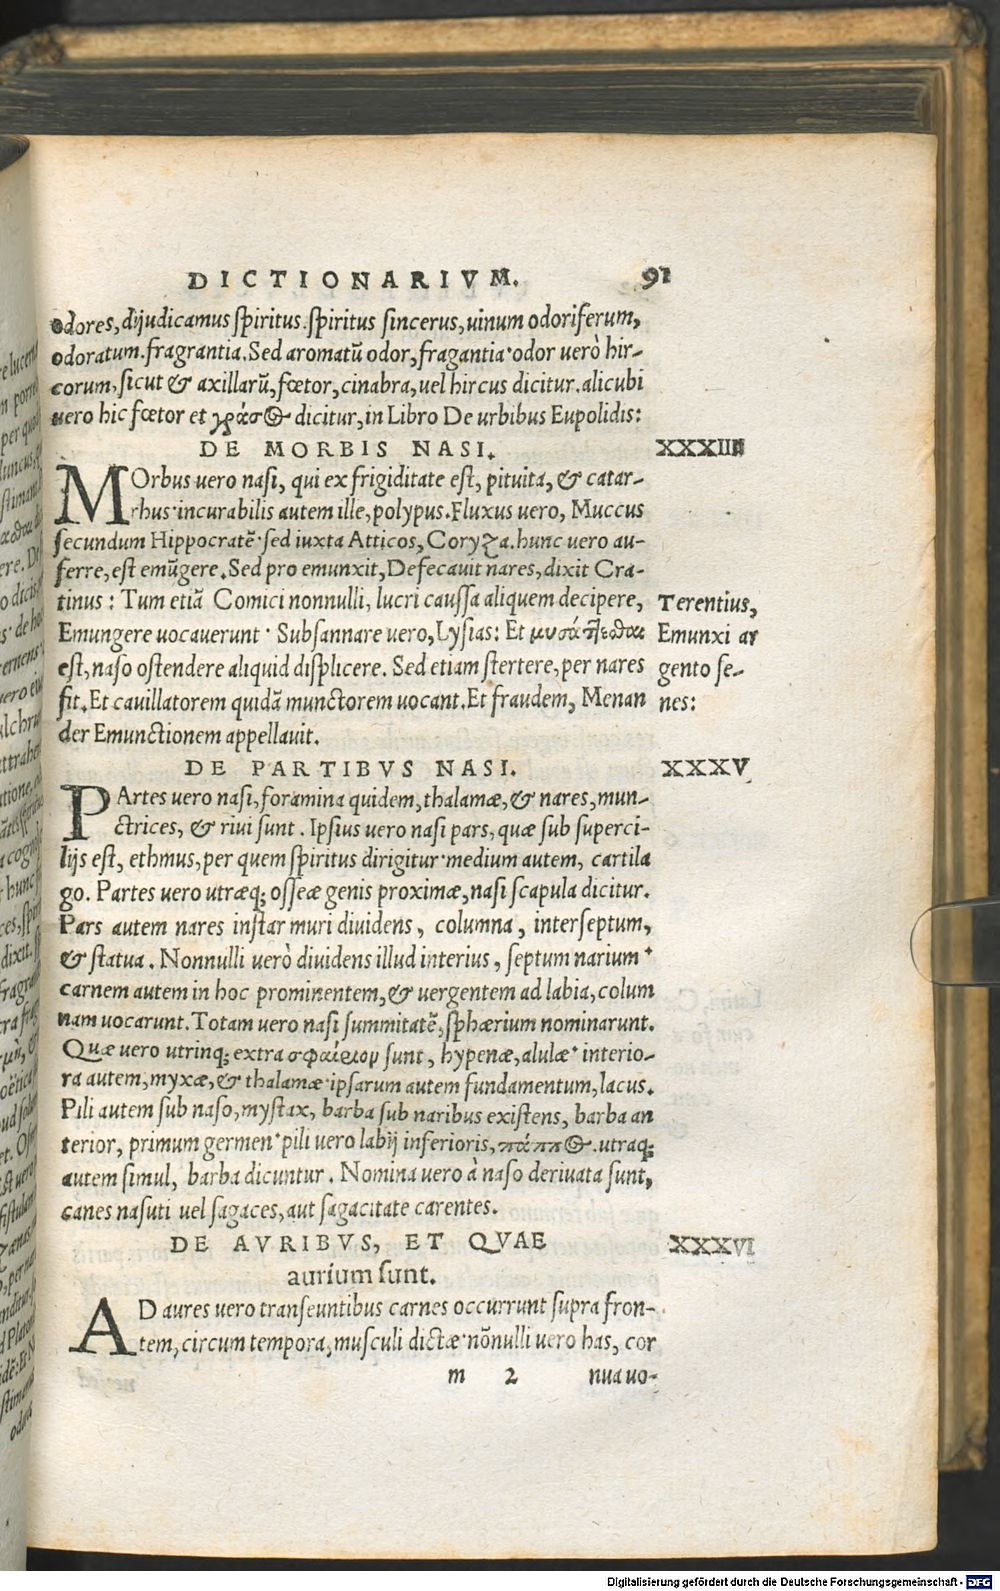 DICTIONARIVM. 91
odores, dijudicamus spiritus. spiritus sincerus, uinum odoriferum,
odoratum. fragrantia. Sed aromatũ odor, fragantia· odor uerò hir-
corum, sicut & axillarũ, fœtor, cinabra, uel hircus dicitur. alicubi
uero hic fœtor et γράσος dicitur, in Libro De urbibus Eupolidis:
DE MORBIS NASI. XXXIIII
MOrbus uero nasi, qui ex frigiditate est, pituita, & catar-
rhus· incurabilis autem ille, polypus. Fluxus uero, Muccus
secundum Hippocratẽ· sed iuxta Atticos, Coryza. hunc uero au-
ferre, est emũgere. Sed pro emunxit, Defecauit nares, dixit Cra-
tinus: Tum etiã Comici nonnulli, lucri caussa aliquem decipere,
Emungere uocauerunt· Subsannare uero, Lysias: Et μυσάττεσθαι
est, naso ostendere aliquid displicere. Sed etiam stertere, per nares
fit. Et cauillatorem quidã munctorem uocant. Et fraudem, Menan
der Emunctionem appellauit.
Terentius,
Emunxi ar
gento se-
nes:
DE PARTIBVS NASI. XXXV
PArtes uero nasi, foramina quidem, thalamæ, & nares, mun-
ctrices, & riui sunt. Ipsius uero nasi pars, quæ sub superci-
lijs est, ethmus, per quem spiritus dirigitur· medium autem, cartila
go. Partes uero utræq; osseæ genis proximæ, nasi scapula dicitur.
Pars autem nares instar muri diuidens, columna, interseptum,
& statua. Nonnulli uerò diuidens illud interius, septum narium·
carnem autem in hoc prominentem, & uergentem ad labia, colum
nam uocarunt. Totam uero nasi summitatẽ, sphærium nominarunt.
Quæ uero utrinq; extra σφαίριον sunt, hypenæ, alulæ· interio-
ra autem, myxæ, & thalamæ· ipsarum autem fundamentum, lacus.
Pili autem sub naso, mystax, barba sub naribus existens, barba an
terior, primum germen· pili uero labij inferioris, πάππος. utraq;
autem simul, barba dicuntur. Nomina uero à naso deriuata sunt,
canes nasuti uel sagaces, aut sagacitate carentes.
DE AVRIBVS, ET QVAE XXXVI
aurium sunt.
AD aures uero transeuntibus carnes occurrunt supra fron-
tem, circum tempora, musculi dictæ· nõnulli uero has, cor
m 2 nua uo-
Digitalisierung gefördert durch die Deutsche Forschungsgemeinschaft - DFG